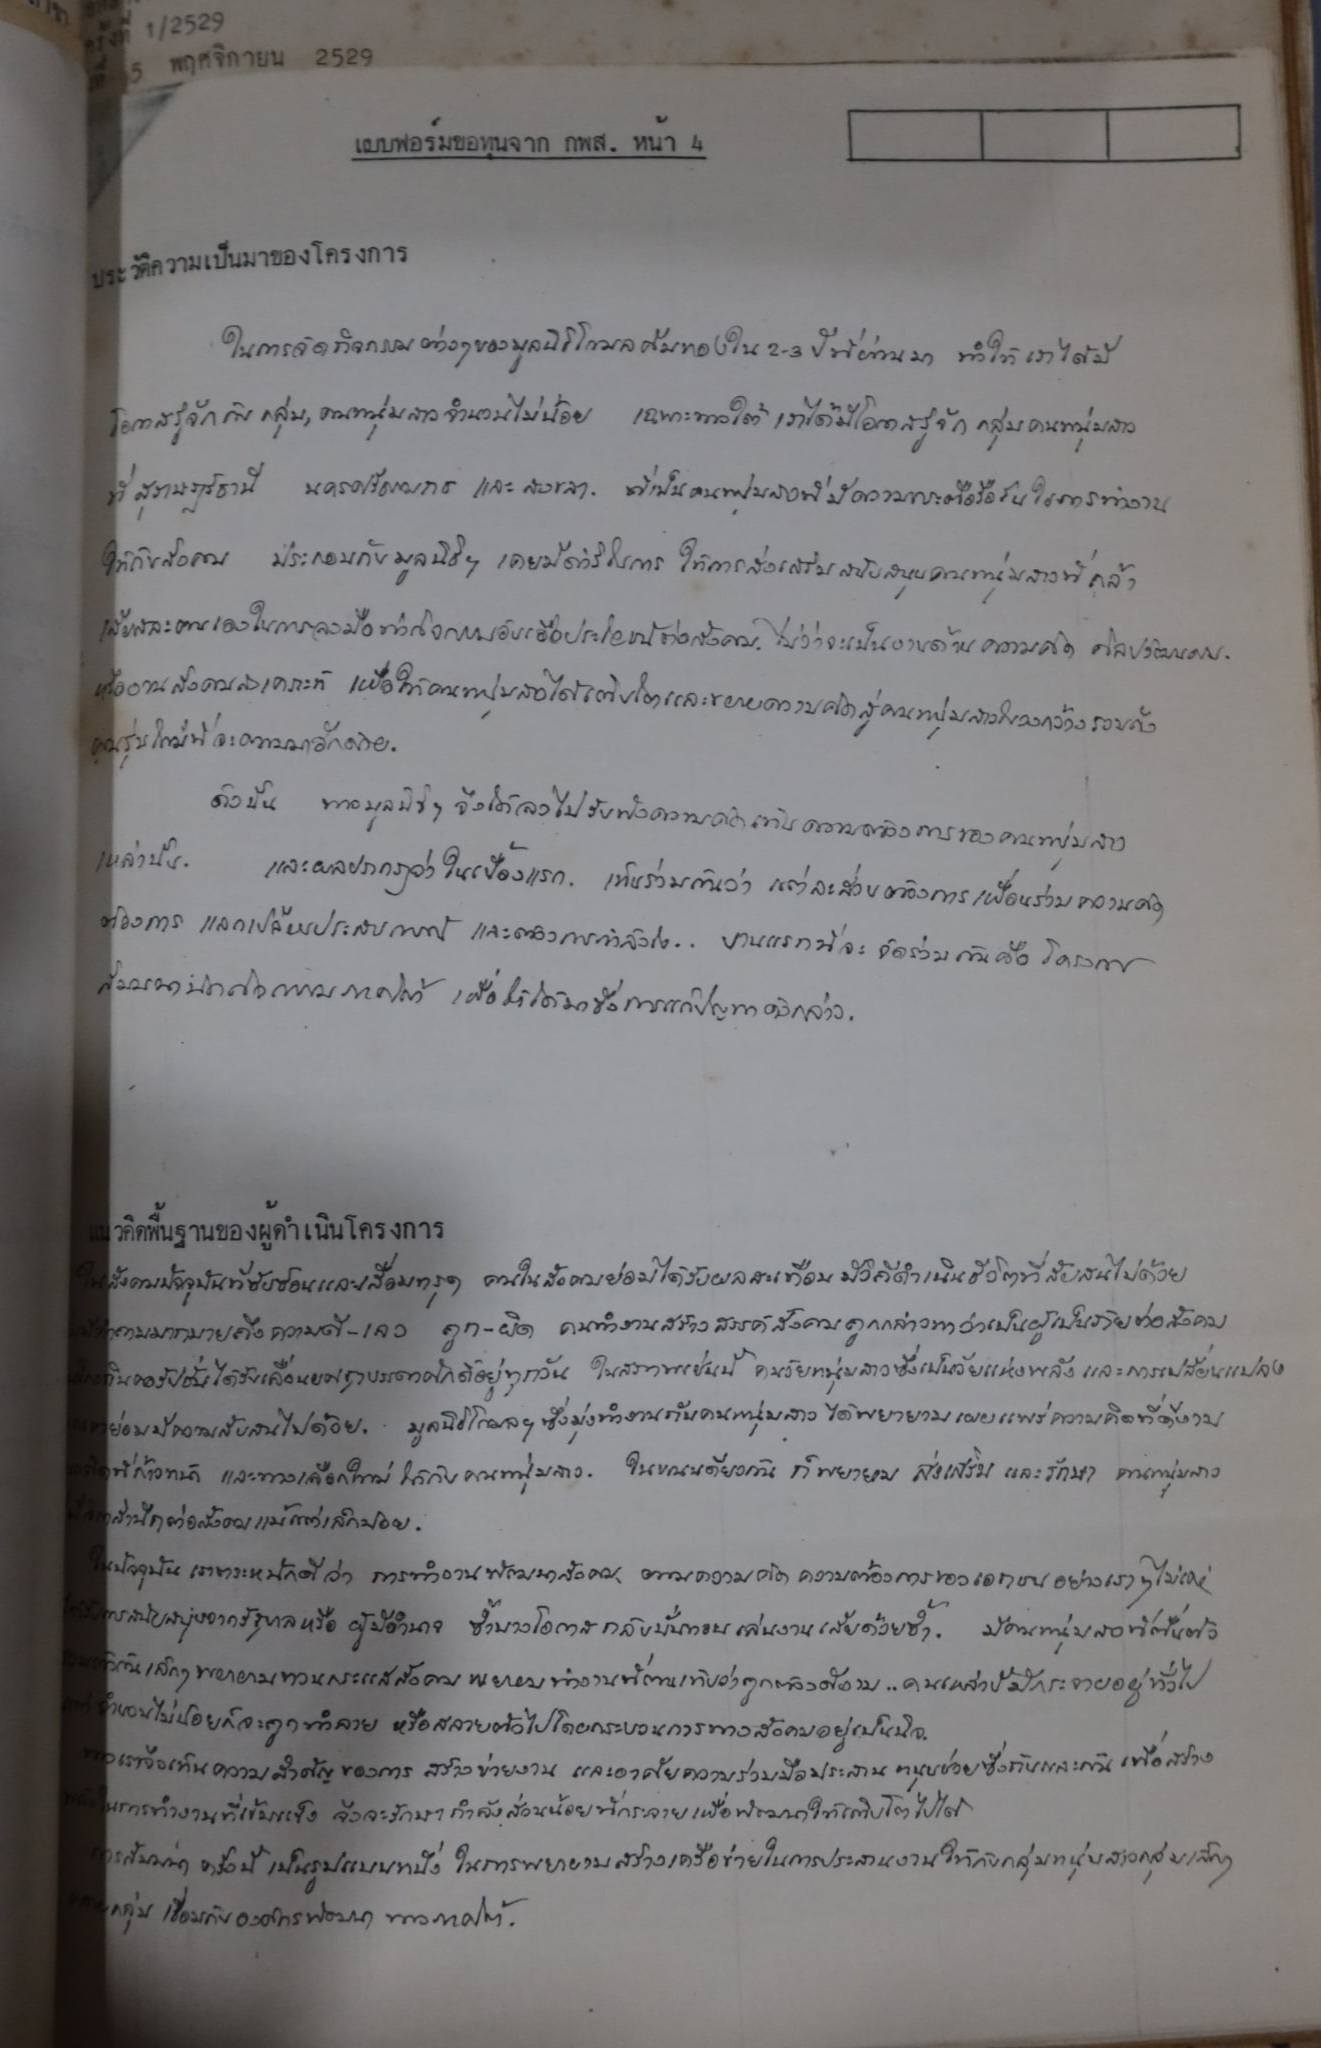 ครั้งที่ 1/2529
5 พฤศจิกายน 2529
แบบฟอร์มขอทุนจาก กพส. หน้า 4
ประวัติความเป็นมาของโครงการ
ในการจัดกิจกรรมต่างๆของมูลนิธิโกมลคีมทองใน 2-3 ปีที่ผ่านมา ทำให้เราได้มี
โอกาสรู้จักกับกลุ่ม, คนหนุ่มสาวจำนวนไม่น้อย เฉพาะทางใต้ เราได้มีโอกาสรู้จักกลุ่มคนหนุ่มสาว
ที่สุราษฎร์ธานี นครศรีธรรมราช และสงขลา. ที่เป็นคนหนุ่มสาวที่มีความกระตือรือร้นในการทำงาน
ให้กับสังคม ประกอบกับมูลนิธิฯ เคยมีดำริในการ ให้การส่งเสริมสนับสนุนคนหนุ่มสาวที่กล้า
เสียสละตนเองในการลงมือทำกิจกรรมอันเอื้อประโยชน์ต่อสังคม. ไม่ว่าจะเป็นงานด้านความคิด ศิลปวัฒนธรรม.
หรืองานสังคมสงเคราะห์ เพื่อให้คนหนุ่มสาวได้เติบโตและขยายความคิดสู่คนหนุ่มสาวในวงกว้างรวมทั้ง
คนรุ่นใหม่ที่จะตามมาอีกด้วย.
ดังนั้น ทางมูลนิธิฯ จึงได้ลงไปรับฟังความคิดเห็นความต้องการของคนหนุ่มสาว
เหล่านั้น. และผลปรากฏว่าในเบื้องแรก. เห็นร่วมกันว่า แต่ละส่วนต้องการเพื่อนร่วมความคิด
ต้องการ แลกเปลี่ยนประสบการณ์ และต้องการกำลังใจ.. งานแรกที่จะจัดร่วมกันคือ โครงการ
สัมมนา ภาคใต้ เพื่อให้ได้มาซึ่งการแก้ปัญหาดังกล่าว.
แนวคิดพื้นฐานของผู้ดำเนินโครงการ
ในสังคมปัจจุบันที่ซับซ้อนและเสื่อมทรุด คนในสังคมย่อมได้รับผลสะเทือน มีวิถีดำเนินชีวิตที่สับสนไปด้วย
มีคำถามมากมายถึงความดี-เลว ถูก-ผิด คนทำงานสร้างสรรค์สังคมถูกกล่าวหาว่าเป็นผู้เป็นภัยต่อสังคม
คอรัปชั่นได้รับเลื่อนยศฐาบรรดาศักดิ์อยู่ทุกวัน ในสภาพเช่นนี้ คนวัยหนุ่มสาวซึ่งเป็นวัยแห่งพลัง และการเปลี่ยนแปลง
ย่อมมีความสับสนไปด้วย. มูลนิธิโกมลฯ ซึ่งมุ่งทำงานกับคนหนุ่มสาว ได้พยายามเผยแพร่ความคิดที่ดีงาม
ที่ก้าวหน้า และทางเลือกใหม่ ให้กับคนหนุ่มสาว. ในขณะเดียวกัน ก็พยายาม ส่งเสริม และรักษา คนหนุ่มสาว
สำนึกต่อสังคมแม้แต่เล็กน้อย.
ในปัจจุบัน เราตระหนักดีว่า การทำงานพัฒนาสังคม ตามความคิด ความต้องการของเอกชนอย่างเราๆ ไม่
ได้รับการสนับสนุนจากรัฐบาลหรือ ผู้มีอำนาจ ซ้ำบางโอกาสกลับบั่นทอนเล่นงานเสียด้วยซ้ำ. มีคนหนุ่มสาวที่ตื่นตัว
เล็กๆ พยายามทวนกระแสสังคม พยายามทำงานที่ตนเห็นว่าถูกต้องดีงาม.. คนเหล่านี้มีกระจายอยู่ทั่วไป
จำนวนไม่น้อยก็จะถูกทำลาย หรือสลายตัวไปโดยกระบวนการทางสังคมอยู่เป็นนิจ.
ทางเราจึงเห็นความสำคัญของการ สร้างข่ายงาน และอาศัยความร่วมมือประสาน หนุนช่วยซึ่งกันและกัน เพื่อสร้าง
พลังในการทำงานที่เข้มแข็ง จึงจะรักษากำลังส่วนน้อยที่กระจาย เพื่อพัฒนาให้เติบโตไปได้
การสัมมนาครั้งนี้ เป็นรูปแบบหนึ่ง ในการพยายามสร้างเครือข่ายในการประสานงานให้กับกลุ่มหนุ่มสาวกลุ่มเล็กๆ
กลุ่ม เชื่อมกับองค์กรพัฒนา ทางภาคใต้.